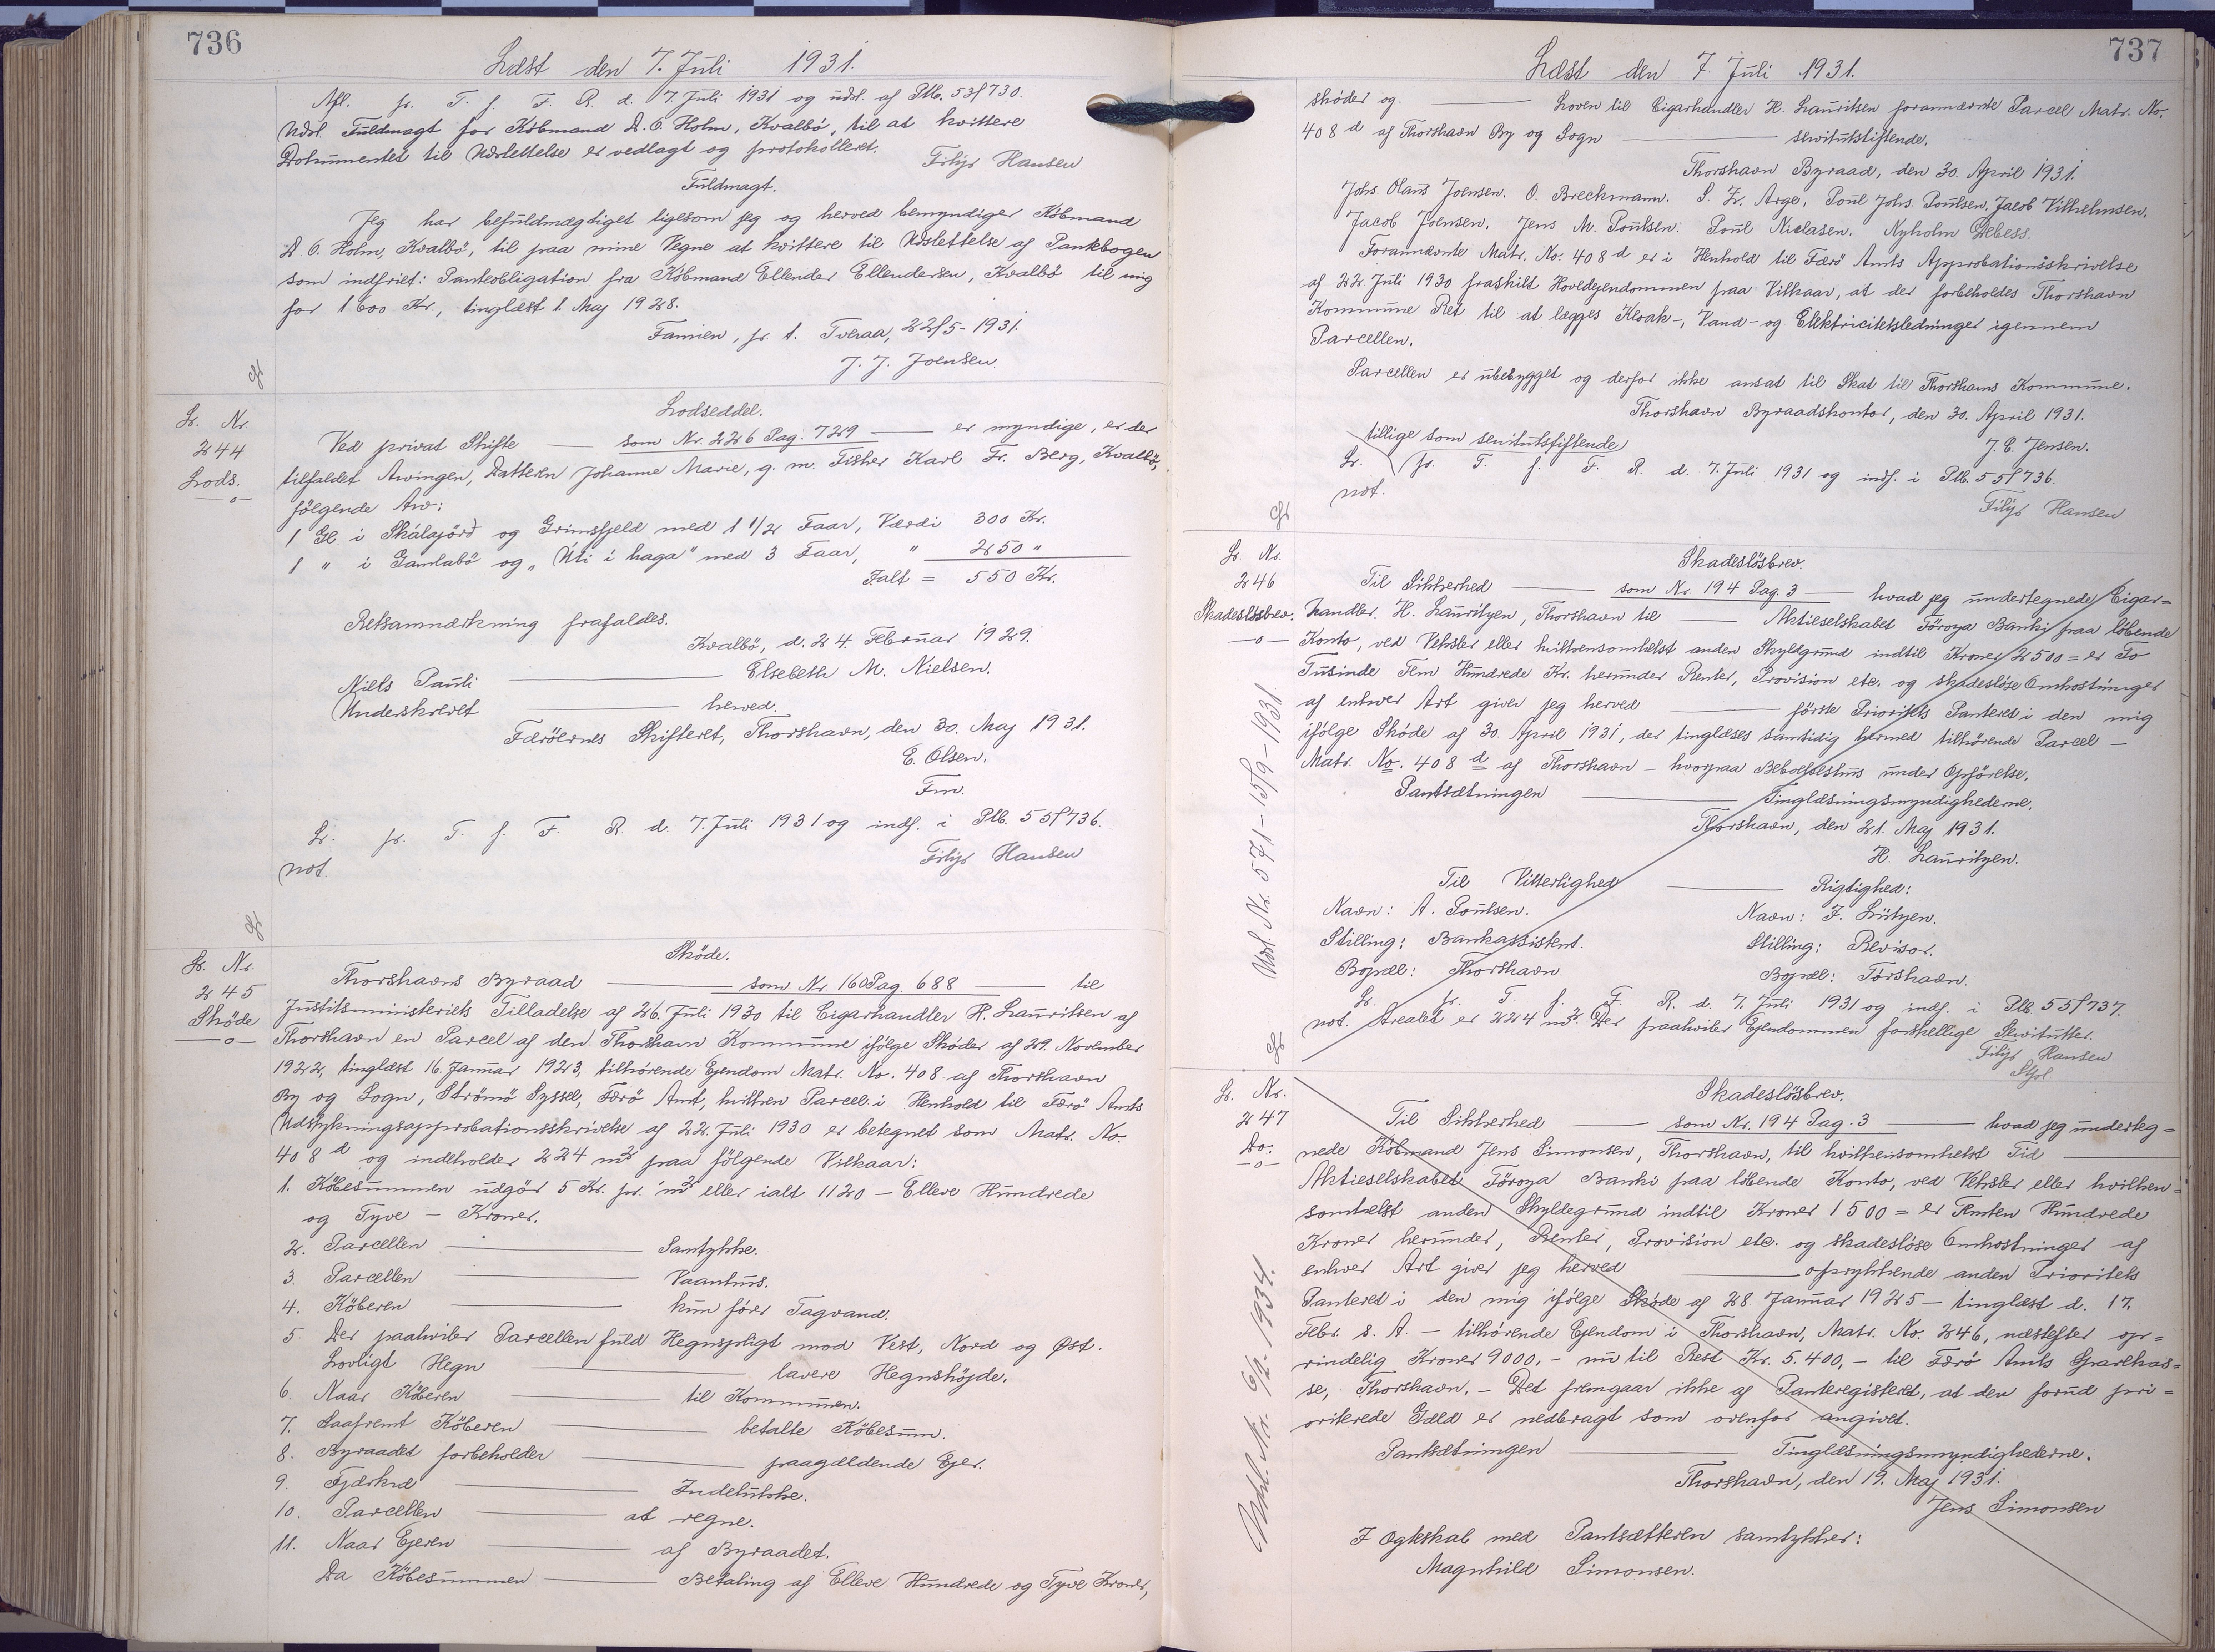 736
Læst den 7. Juli 1931.
Afl. pr. T. f. F. R. d. 7. Juli 1931 og udsl. af Ptb. 53f730.
Udsl. Fuldmagt for Købmand D. O. Holm, Kvalbø, til at kvittere
Dokumentet til Udslettelse er vedlagt og protokolleret.
Filip Hansen
Fuldmagt.
Jeg har befuldmægtiget ligesom jeg og herved bemyndiger Købmand
D. O. Holm, Kvalbø, til paa mine Vegne at kvittere til Udslettelse af Pantebogen
som indfriet: Panteobligation fra Købmand Ellender Ellendersen, Kvalbø til mig
for 1600 Kr., tinglæst 1. Maj 1928.
Famien, p. t. Tveraa, 22/5-1931.
J. J. Joensen.
Lr. Nr.
244
Lods.
Lodseddel.
Ved privat Skifte — som Nr. 226 Pag. 729 — er myndige, er der
tilfaldet Arvingen, Datteren Johanne Marie, g. m. Fisker Karl Fr. Berg, Kvalbø,
følgende Arv:
1 Gl. i Skálajørd og Grimsfjeld med 1 1/2 Faar, Værdi 300 Kr.
1 " i Gamlabø og „Úti í haga" med 3 Faar, " 250 "
Ialt = 550 Kr.
Retsanmærkning frafaldes.
Kvalbø, d. 24. Februar 1929.
Niels Pauli — Elsebeth M. Nielsen.
Underskrevet — herved.
Færøernes Skifteret, Thorshavn, den 30. Maj 1931.
E. Olsen.
Fm.
Lr. pr. T. f. F. R. d. 7. Juli 1931 og indf. i Ptb. 55f736.
not.
Filip Hansen
Lr. Nr.
245
Skøde
Skøde.
Thorshavns Byraad — som Nr. 160 Pag. 688 — til
Justitsministeriets Tilladelse af 26. Juli 1930 til Cigarhandler H. Lauritsen af
Thorshavn en Parcel af den Thorshavn Kommune ifølge Skøder af 29. November
1922, tinglæst 16. Januar 1923, tilhørende Ejendom Matr. No. 408 af Thorshavn
By og Sogn, Strømø Syssel, Færø Amt, hvilken Parcel i Henhold til Færø Amts
Udstykningsapprobationsskrivelse af 22. Juli 1930 er betegnet som Matr. No.
408 d og indeholder 224 m² paa følgende Vilkaar:
1. Købesummen udgør 5 Kr. pr. m² eller ialt 1120 — Elleve Hundrede
og Tyve — Kroner.
2. Parcellen — Samtykke.
3. Parcellen — Vaanhus.
4. Køberen — kun fører Tagvand.
5. Der paahviler Parcellen fuld Hegnspligt mod Vest, Nord og Øst.
Lovligt Hegn — lavere Hegnshøjde.
6. Naar Køberen — til Kommunen.
7. Saafremt Køberen — betalte Købesum.
8. Byraadet forbeholder — paagældende Ejer.
9. Fjærkræ — Indelukke.
10. Parcellen — at regne.
11. Naar Ejeren — af Byraadet.
Da Købesummen — Betaling af Elleve Hundrede og Tyve Kroner,
737
Læst den 7. Juli 1931.
skøder og — Loven til Cigarhandler H. Lauritsen forannævnte Parcel Matr. No.
408 d af Thorshavn By og Sogn — servitutstiftende.
Thorshavn Byraad, den 30. April 1931.
Johs. Olaus Joensen. O. Breckmann. S. Fr. Arge. Poul Johs. Poulsen, Jacob Vilhelmsen.
Jacob Joensen. Jens M. Poulsen. Poul Niclasen. Nyholm Debess.
Forannævnte Matr. No. 408 d er i Henhold til Færø Amts Approbationsskrivelse
af 22 Juli 1930 fraskilt Hovedejendommen paa Vilkaar, at der forbeholdes Thorshavn
Kommune Ret til at lægges Kloak-, Vand- og Elektricitetsledninger igennem
Parcellen.
Parcellen er ubebygget og derfor ikke ansat til Skat til Thorshavns Kommune.
Thorshavn Byraadskontor, den 30. April 1931.
J. E. Jensen.
tillige som servitutstiftende
Lr. pr. T. f. F. R. d. 7. Juli 1931 og indf. i Ptb. 55f736.
not.
Filip Hansen
Lr. Nr.
246
Skadesløsbrev.
Udsl. Nr. 571-15/9-1931.
Skadesløsbrev.
Til Sikkerhed — som Nr. 194 Pag. 3 — hvad jeg undertegnede Cigar=
handler H. Lauritzen, Thorshavn til — Aktieselskabet Føroya Banki paa løbende
Konto, ved Veksler eller hvilkensomhelst anden Skyldgrund indtil Kroner 2500 = er To
Tusinde Fem Hundrede Kr. herunder Renter, Provision etc. og skadesløse Omkostninger
af enhver Art giver jeg herved — første Prioritets Panteret i den mig
ifølge Skøde af 30. April 1931, der tinglæses samtidig hermed tilhørende Parcel —
Matr. No. 408 d af Thorshavn — hvorpaa Beboelseshus under Opførelse.
Pantsætningen — Tinglæsningsmyndighederne.
Thorshavn, den 21. Maj 1931.
H. Lauritzen.
Til Vitterlighed — Rigtighed:
Navn: A. Poulsen. Navn: F. Lützen.
Stilling: Bankassistent. Stilling: Revisor.
Bopæl: Thorshavn. Bopæl: Tórshavn.
Lr. pr. T. f. F. R. d. 7. Juli 1931 og indf. i Ptb. 55f737.
not. Arealet er 224 m². Der paahviler Ejendommen forskellige Servitutter.
Filip Hansen
Lr. Nr.
247
Do.
Udsl. Nr. 6/2-1934.
Skadesløsbrev.
Til Sikkerhed — som Nr. 194 Pag. 3 — hvad jeg underteg=
nede Købmand Jens Simonsen, Thorshavn, til hvilkensomhelst Tid —
Aktieselskabet Føroya Banki paa løbende Konto, ved Veksler eller hvilken=
somhelst anden Skyldegrund indtil Kroner 1500 = er Femten Hundrede
Kroner herunder, Renter, Provision etc. og skadesløse Omkostninger af
enhver Art giver jeg herved — oprykkende anden Prioritets
Panteret i den mig ifølge Skøde af 28. Januar 1925 — tinglæst d. 17.
Febr. s. A. — tilhørende Ejendom i Thorshavn, Matr. No. 246, næstefter op=
rindelig Kroner 9000,- nu til Rest Kr. 5.400,- til Færø Amts Sparekas=
se, Thorshavn. — Det fremgaar ikke af Panteregisteret, at den forud pri=
oriterede Gæld er nedbragt som ovenfor angivet.
Pantsætningen — Tinglæsningsmyndighederne.
Thorshavn, den 19. Maj 1931.
Jens Simonsen
I Ægteskab med Pantsætteren samtykker:
Magnhild Simonsen.